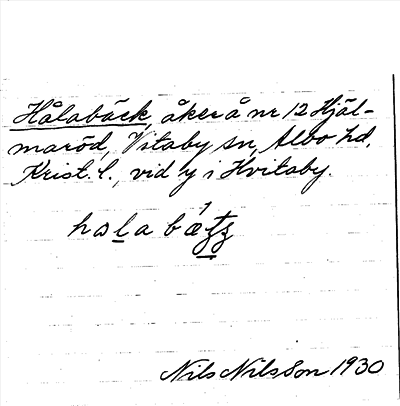 Hålabäck, åker å nr 12 Hjäl-
maröd, Vitaby sn, Albo hd,
Krist. l., vid y i Hvitaby.
Nils Nilsson 1930